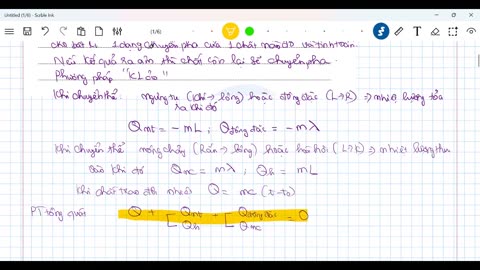 Untitled (1/6) - Scrble Ink
(1/6)
1 dạng chuyển pha của 1 chất nào đó và tính toán
Nếu kết quả ra âm thì chất còn lại sẽ chuyển pha.
Phương pháp "
Khi chuyển thể ngưng tụ (Khí → lỏng) hoặc đông đặc (L→R) ⇒ nhiệt lượng tỏa
ra khi đó
Qnt = -mL ; Qđông đặc = -mλ
Khi chuyển thể nóng chảy (Rắn → lỏng) hoặc hóa hơi (L→K) ⇒ nhiệt lượng thu
vào khi đó Qnc = mλ , Qh = mL
Khi chất trao đổi nhiệt Q = mc (t-t0)
PT tổng quát Q + [ Qnt + [ Qđông đặc = 0
Qh Qnc